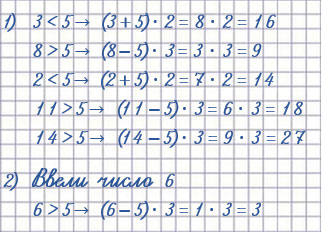 1) 3 < 5 → (3 + 5) · 2 = 8 · 2 = 16
8 > 5 → (8 − 5) · 3 = 3 · 3 = 9
2 < 5 → (2 + 5) · 2 = 7 · 2 = 14
11 > 5 → (11 − 5) · 3 = 6 · 3 = 18
14 > 5 → (14 − 5) · 3 = 9 · 3 = 27
2) Ввели число 6
6 > 5 → (6 − 5) · 3 = 1 · 3 = 3